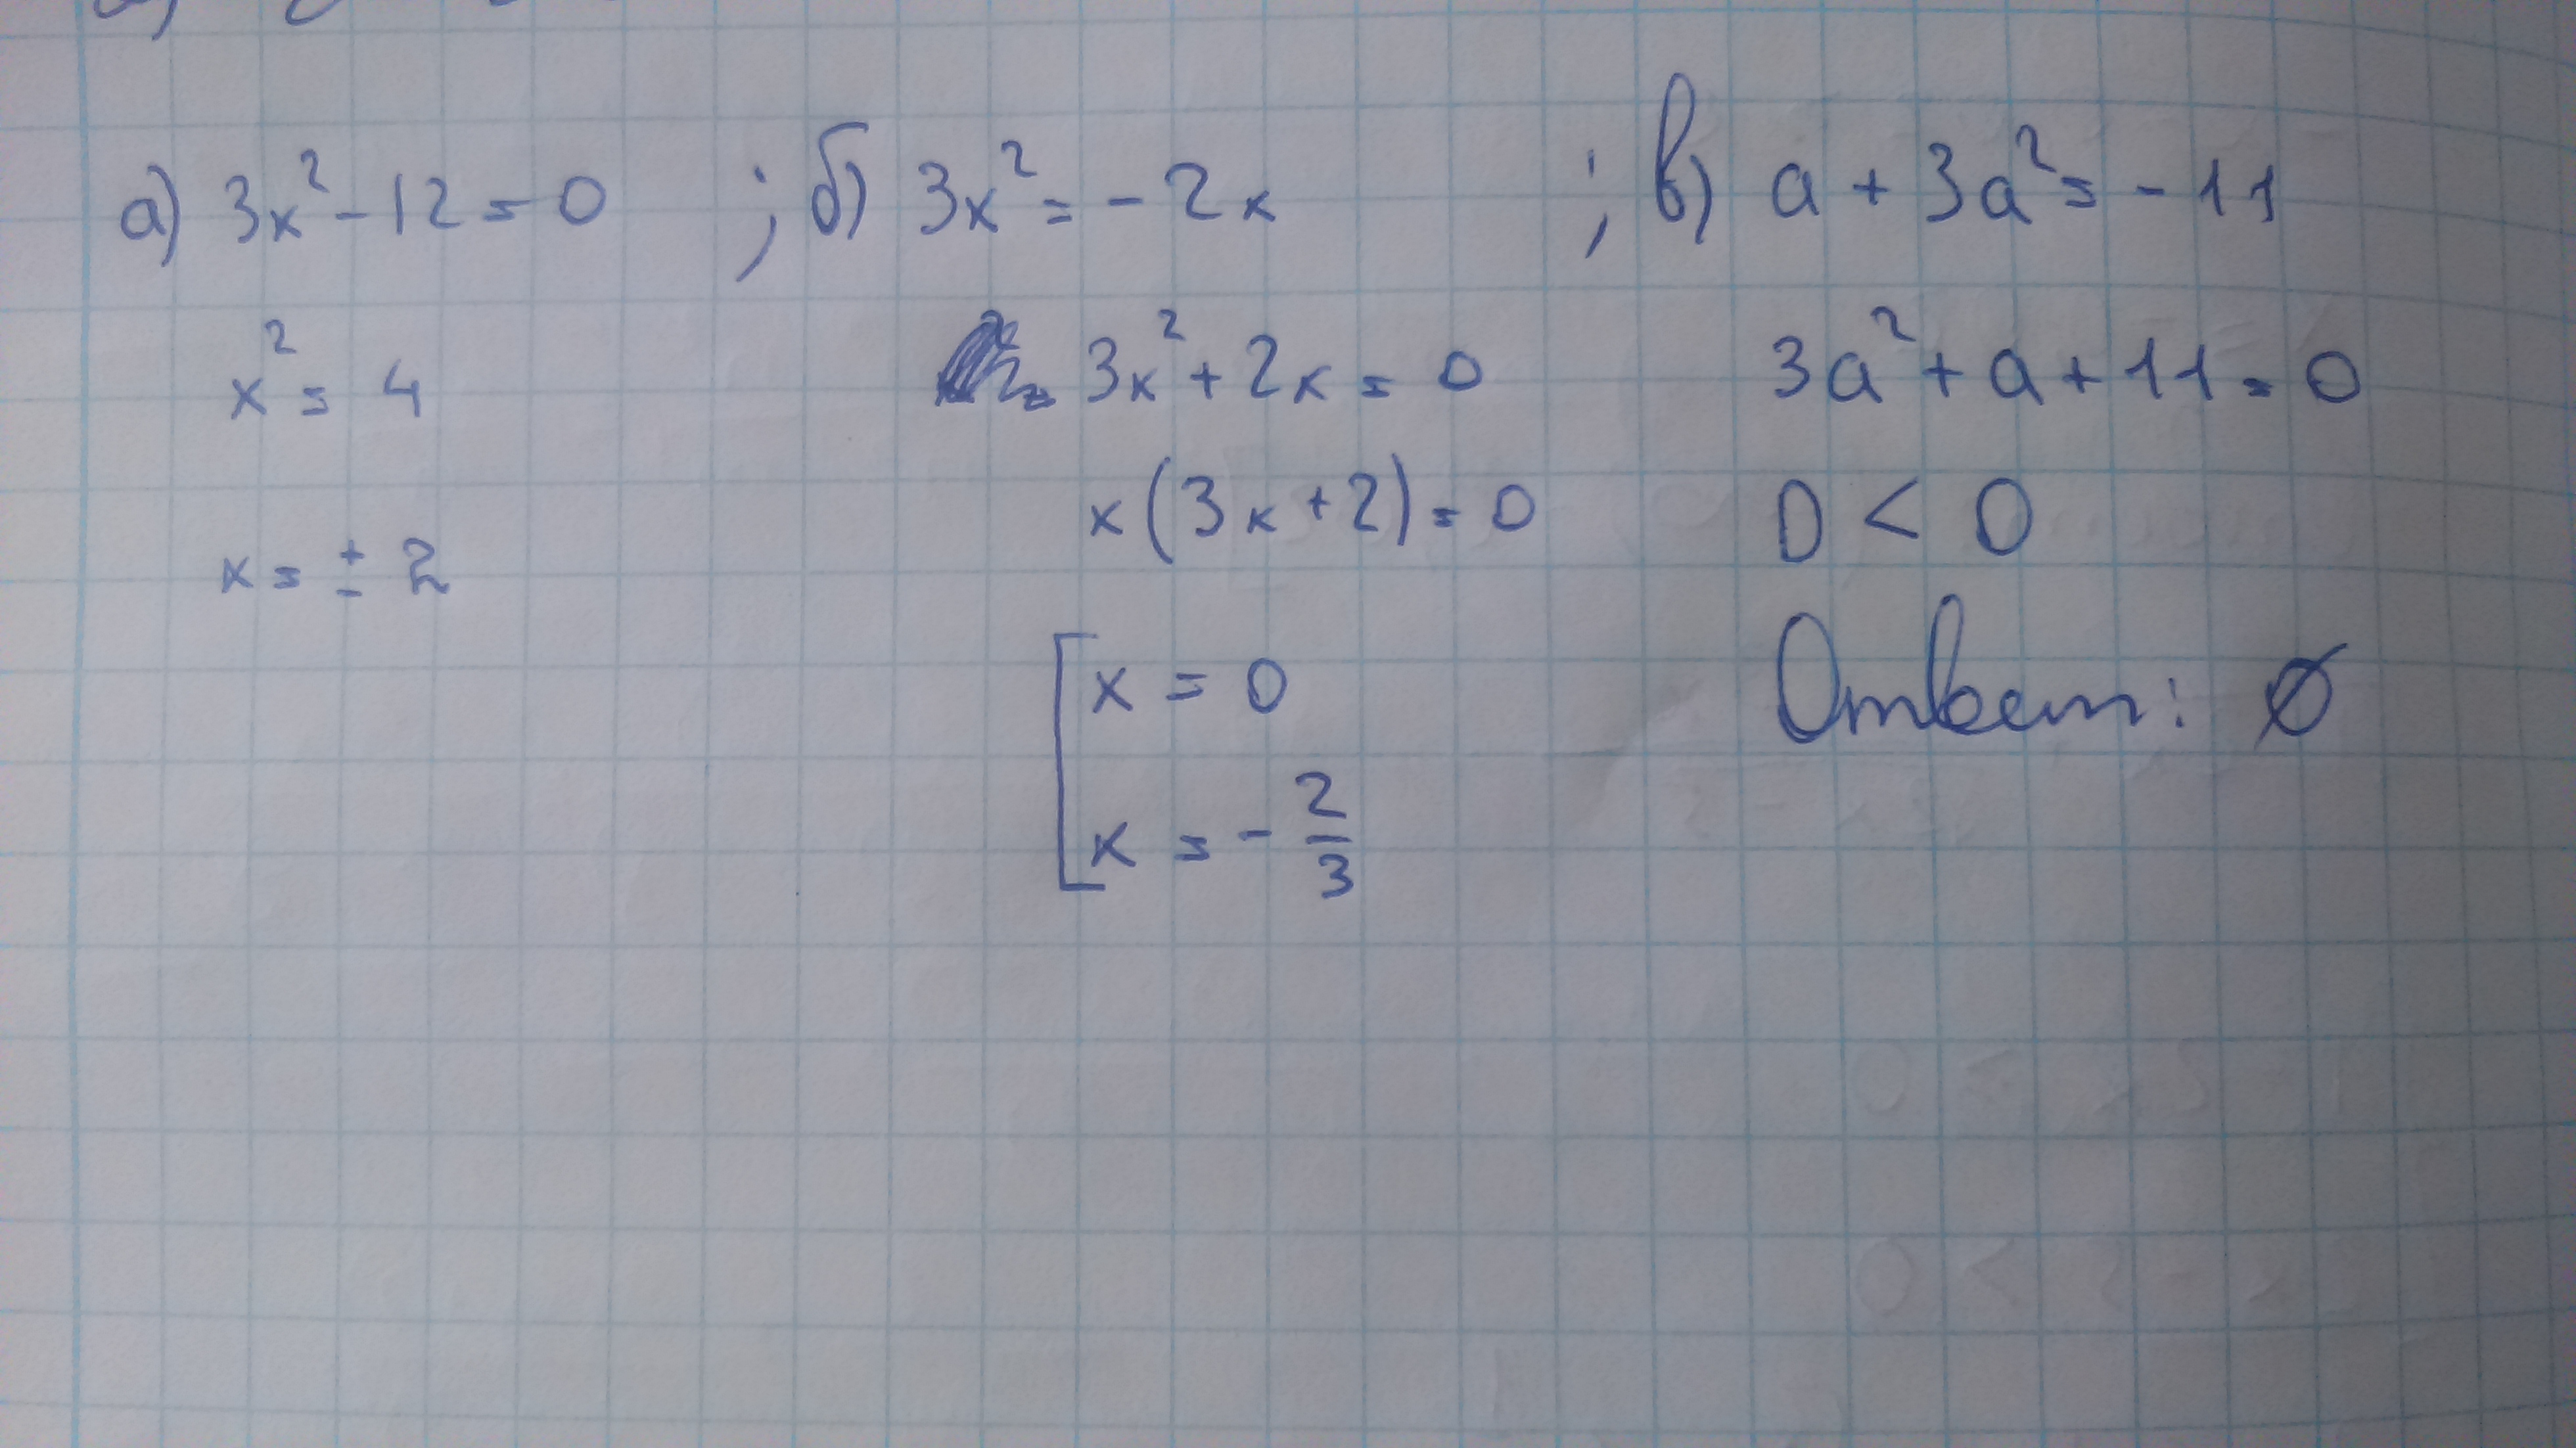 а) 3x² - 12 = 0 ; б) 3x² = - 2x ; в) a + 3a² = - 11
x² = 4
x = ± 2
3x² + 2x = 0
x(3x + 2) = 0
x = 0
x = - 2/3
3a² + a + 11 = 0
D < 0
Ответ: ∅